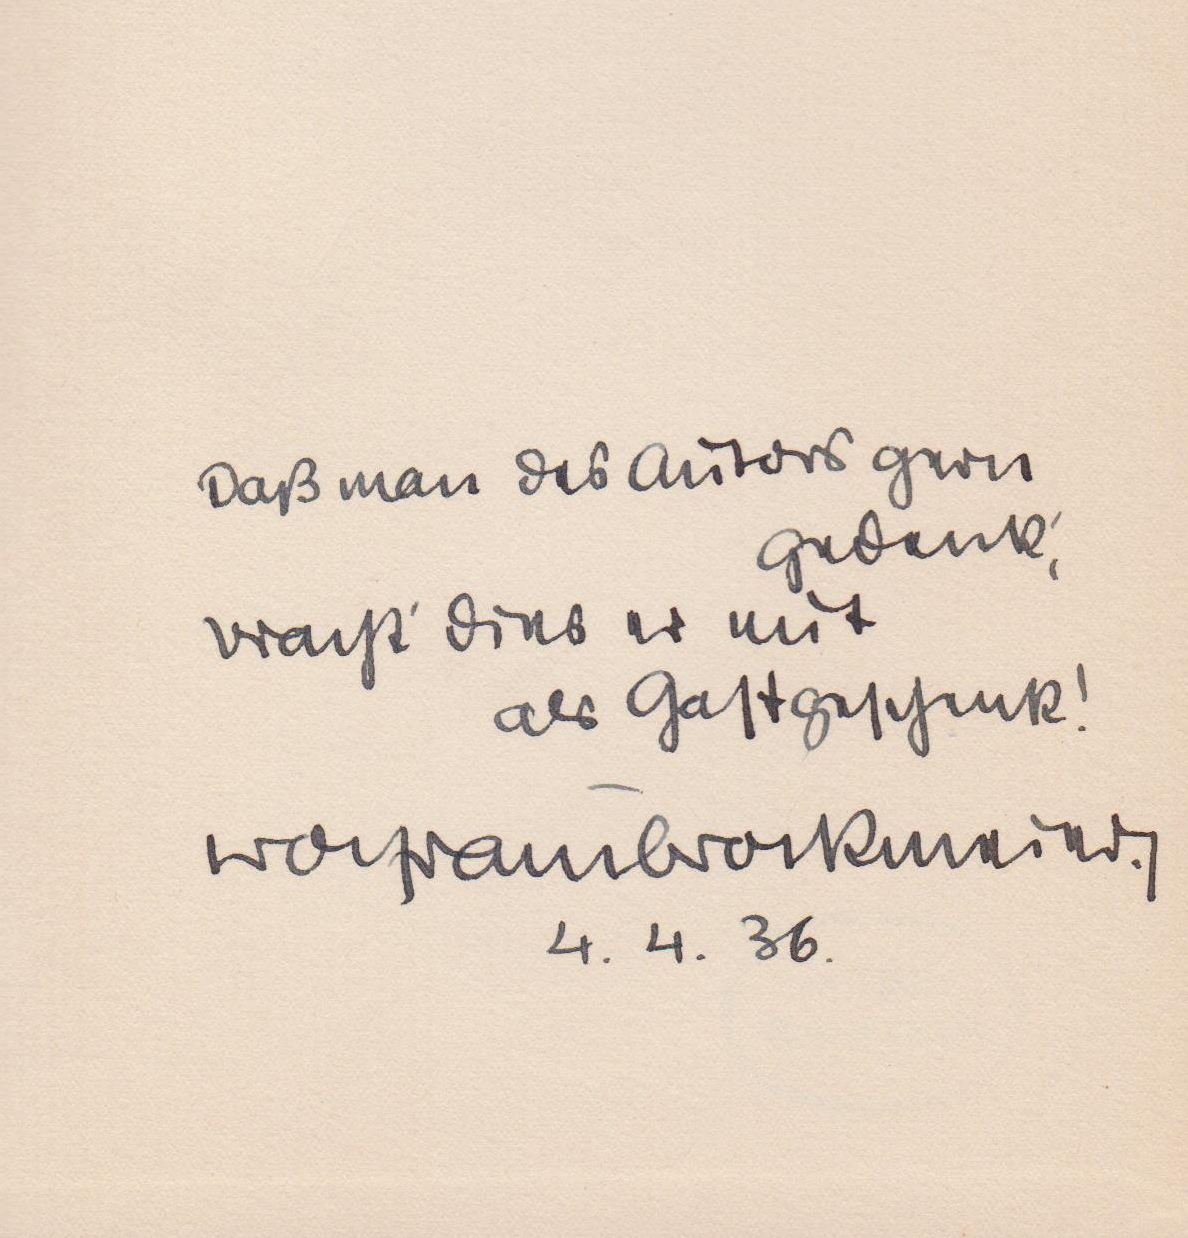 Daß man des Autors gern
gedenk',
bracht' dies er mit
als Gastgeschenk!
Wolfram Brockmeier.
4. 4. 36.